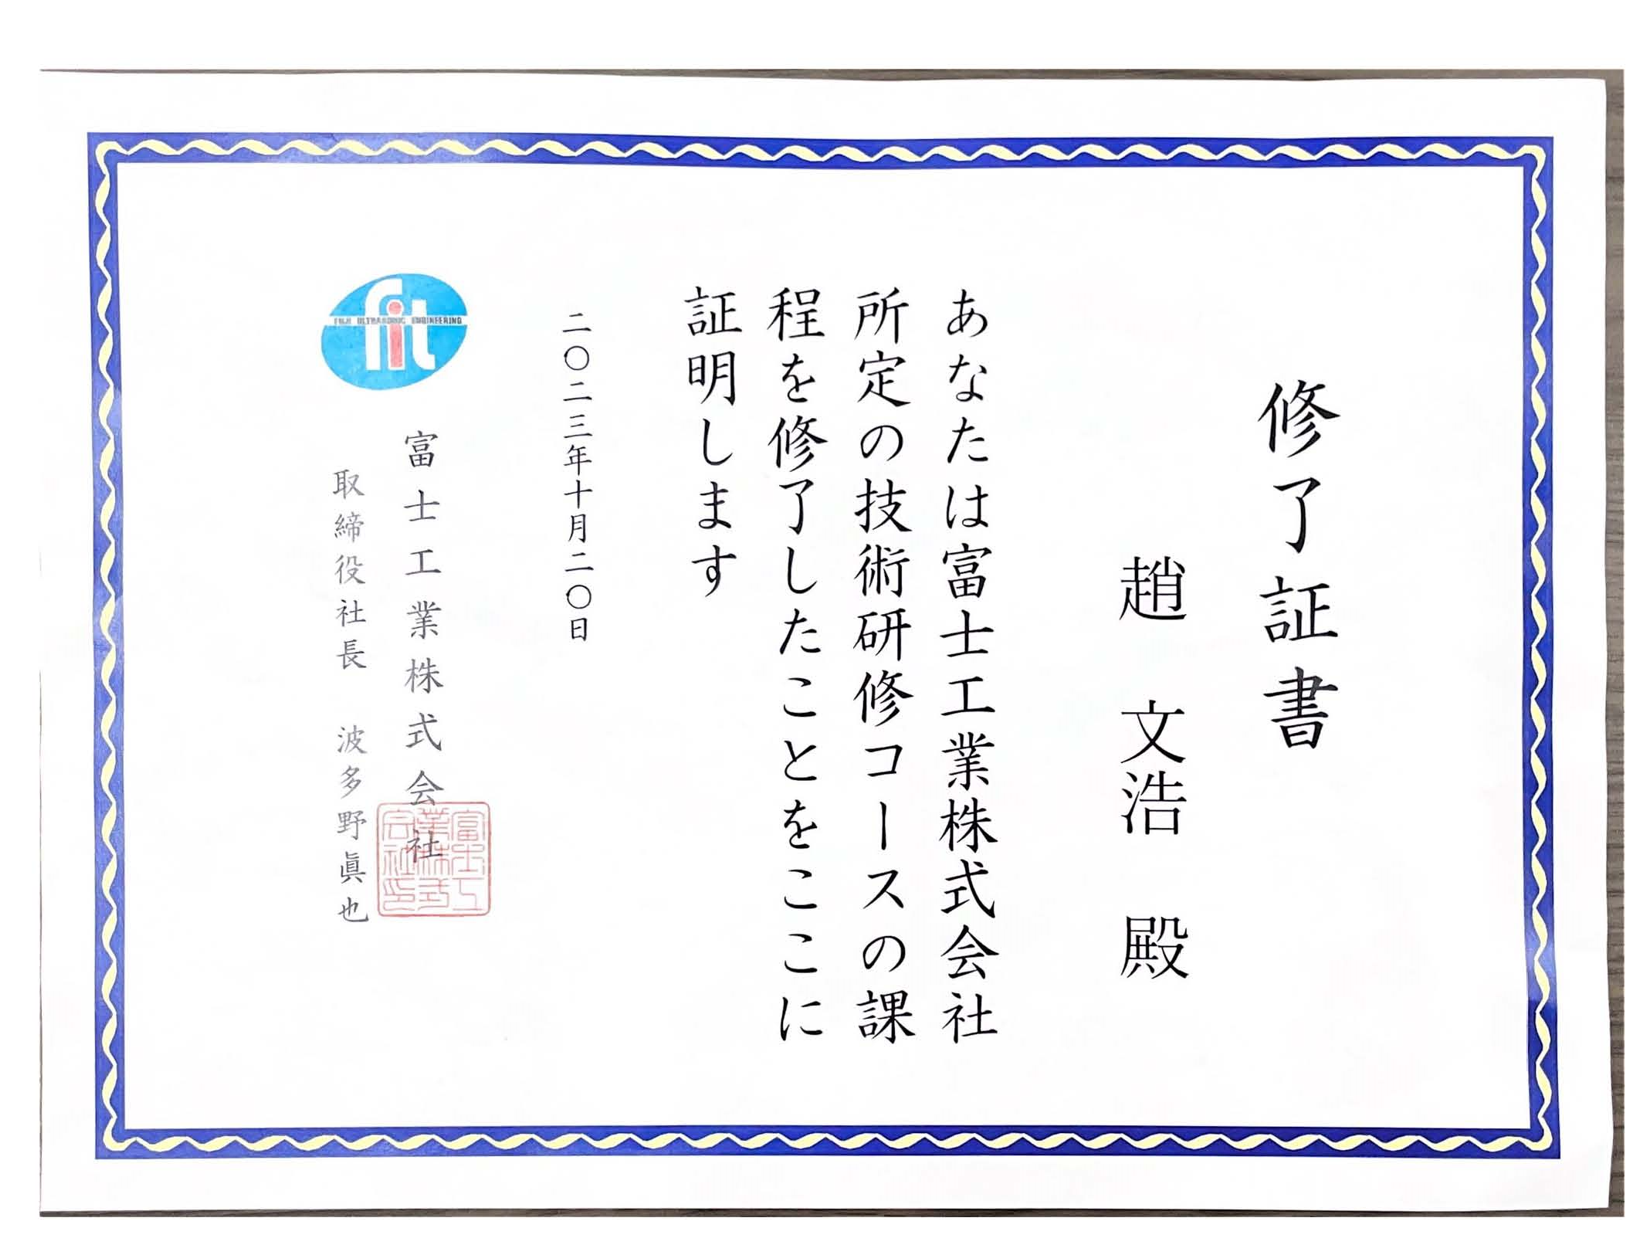 修了証書
趙 文浩 殿
あなたは富士工業株式会社
所定の技術研修コースの課
程を修了したことをここに
証明します
二〇二三年十月二〇日
fit
FUJI ULTRASONIC ENGINEERING
富士工業株式会社
取締役社長 波多野眞也
富士工
業株式
会社印